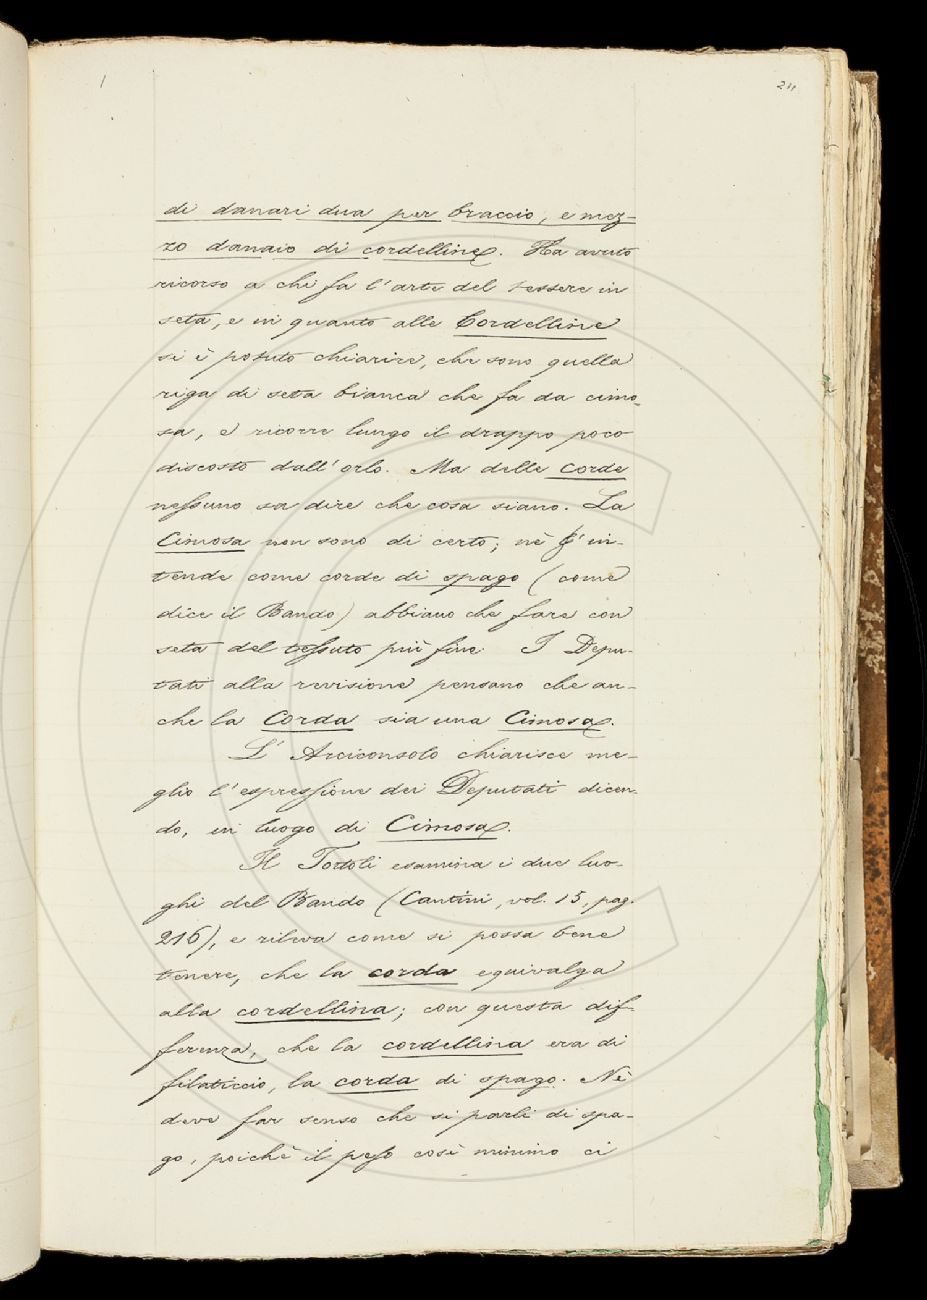 211
di danari dua per braccio, e mez-
zo danaio di cordelline. Ha avuto
ricorso a chi fa l'arte del tessere in
seta, e in quanto alle Cordelline
si è potuto chiarire, che sono quella
riga di seta bianca che fa da cimo-
sa, e ricorre lungo il drappo poco
discosto dall'orlo. Ma delle Corde
nessuno sa dire che cosa siano. La
Cimosa non sono di certo; nè s'in-
tende come corde di spago (come
dice il Bando) abbiano che fare con
seta del tessuto più fine. I Depu-
tati alla revisione pensano che an-
che la Corda sia una Cimosa.
L'Arciconsolo chiarisce me-
glio l'espressione dei Deputati dicen-
do, in luogo di Cimosa.
Il Tortoli esamina i due luo-
ghi del Bando (Cantini, vol. 15, pag.
216), e rileva come si possa bene
tenere, che la corda equivalga
alla cordellina; con questa dif-
ferenza, che la cordellina era di
filaticcio, la corda di spago. Nè
deve far senso che si parli di spa-
go, poichè il peso così minimo ci